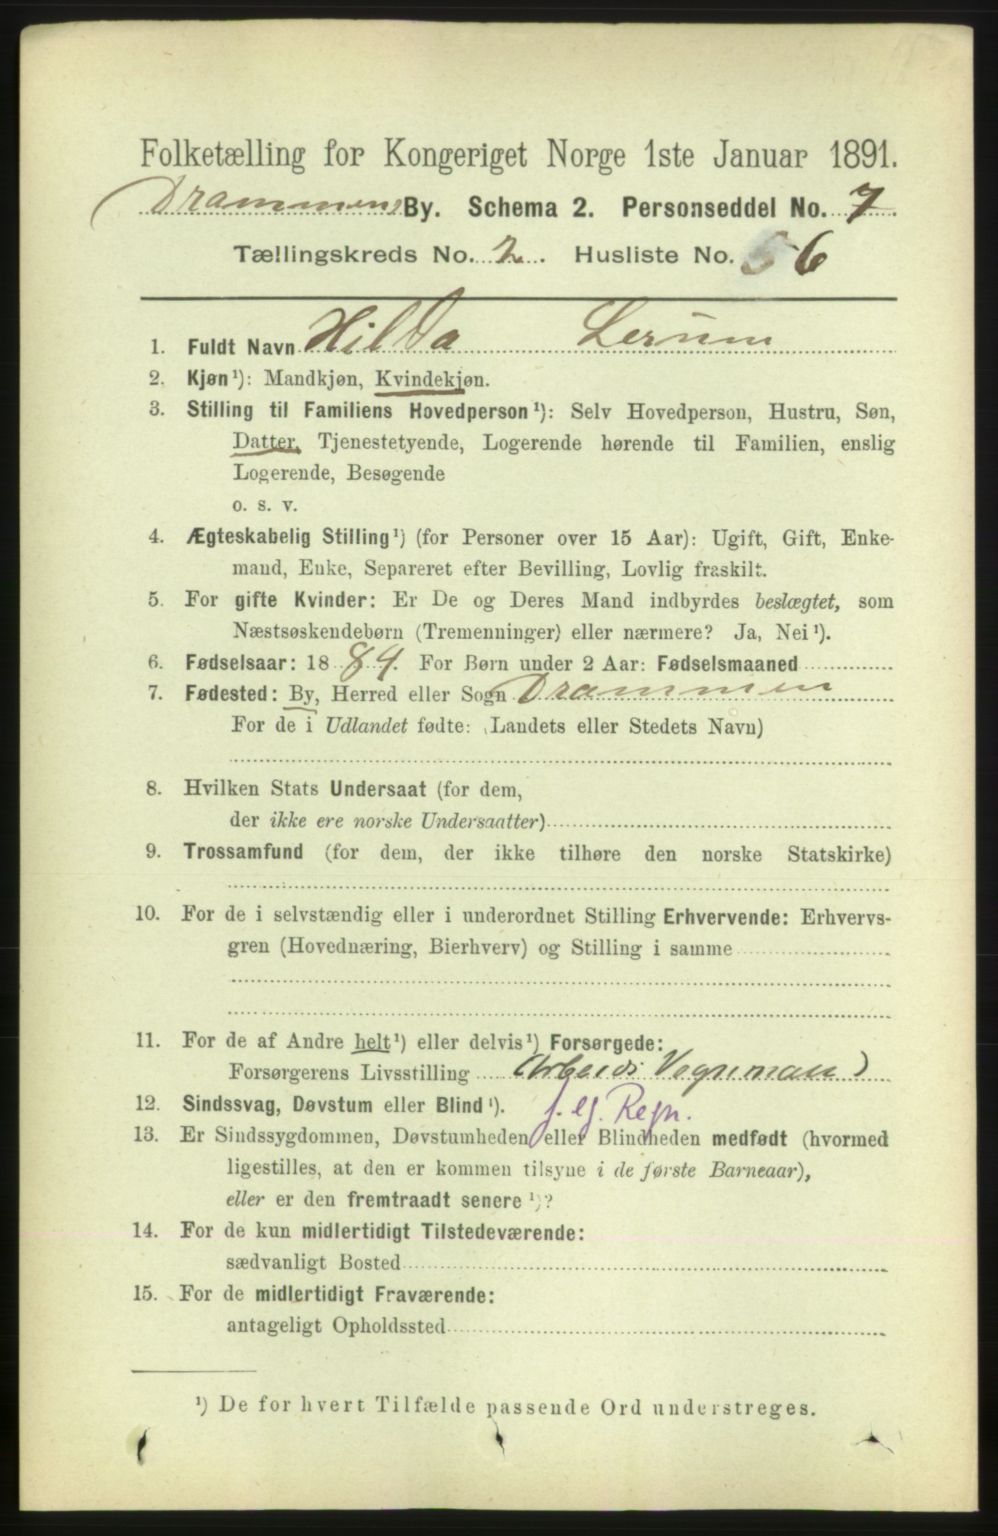 Folketælling for Kongeriget Norge 1ste Januar 1891.
Drammens By. Schema 2. Personseddel No. 7
Tællingskreds No. 2. Husliste No. 56
1. Fuldt Navn Hilda Lerum
2. Kjøn¹): Mandkjøn, Kvindekjøn.
3. Stilling til Familiens Hovedperson¹): Selv Hovedperson, Hustru, Søn,
Datter, Tjenestetyende, Logerende hørende til Familien, enslig
Logerende, Besøgende
o. s. v.
4. Ægteskabelig Stilling¹) (for Personer over 15 Aar): Ugift, Gift, Enke-
mand, Enke, Separeret efter Bevilling, Lovlig fraskilt.
5. For gifte Kvinder: Er De og Deres Mand indbyrdes beslægtet, som
Næstsøskendebørn (Tremenninger) eller nærmere? Ja, Nei¹).
6. Fødselsaar: 1884. For Børn under 2 Aar: Fødselsmaaned
7. Fødested: By, Herred eller Sogn Drammen
For de i Udlandet fødte: (Landets eller Stedets Navn)
8. Hvilken Stats Undersaat (for dem,
der ikke ere norske Undersaatter)
9. Trossamfund (for dem, der ikke tilhøre den norske Statskirke)
10. For de i selvstændig eller i underordnet Stilling Erhvervende: Erhvervs-
gren (Hovednæring, Bierhverv) og Stilling i samme
11. For de af Andre helt¹) eller delvis¹) Forsørgede:
Forsørgerens Livsstilling (Arbeids Vognman)
12. Sindssvag, Døvstum eller Blind¹). f. eg. Regn.
13. Er Sindssygdommen, Døvstumheden eller Blindheden medfødt (hvormed
ligestilles, at den er kommen tilsyne i de første Barneaar),
eller er den fremtraadt senere¹)?
14. For de kun midlertidigt Tilstedeværende:
sædvanligt Bosted
15. For de midlertidigt Fraværende:
antageligt Opholdssted
¹) De for hvert Tilfælde passende Ord understreges.